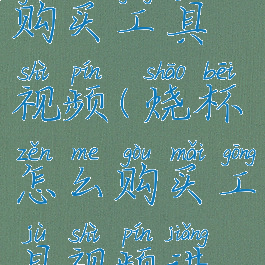 购买工具
shì pín shāo bēi
视频(烧杯
zěn me gòu mǎi gōng
怎么购买工
jù shì pín jiǎng
具视频讲